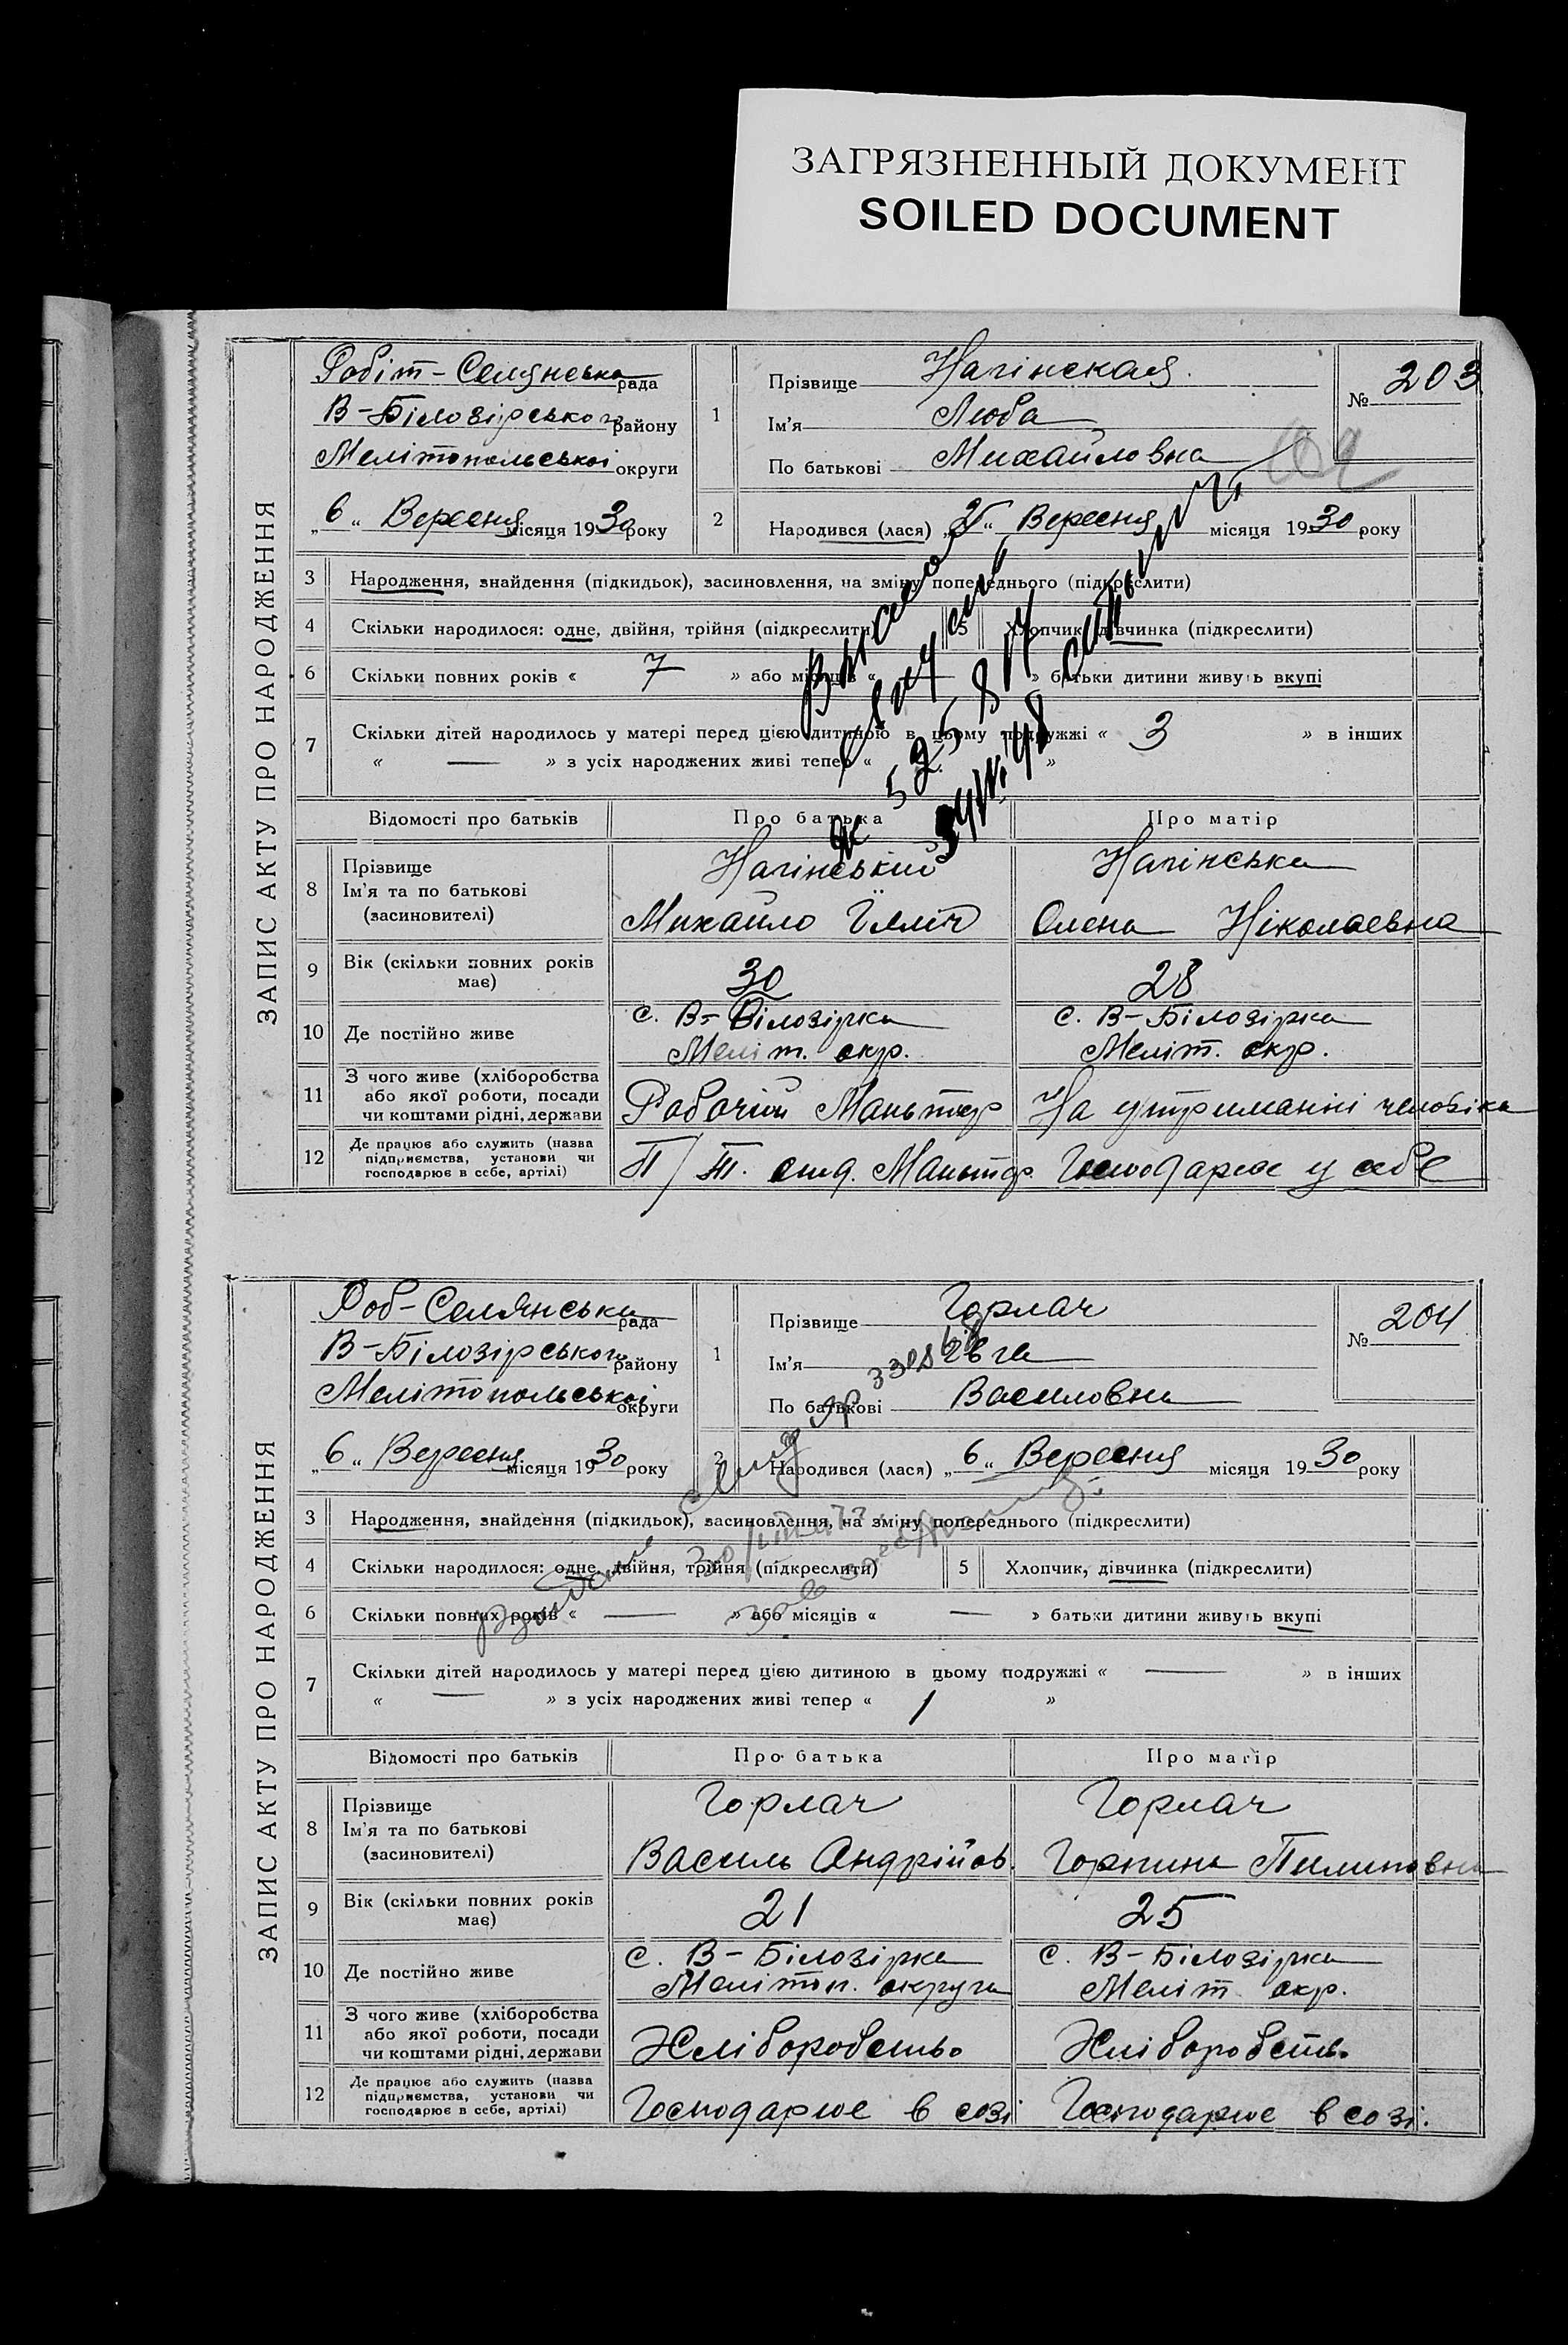 ЗАГРЯЗНЕННЫЙ ДОКУМЕНТ
SOILED DOCUMENT
ЗАПИС АКТУ ПРО НАРОДЖЕННЯ
Робіт-Селянська рада
В-Білозірського району
Мелітопольської округи
„6“ Вересня місяця 1930 року
1
Прізвище Нагінская
Ім'я Люба
По батькові Михайловна
№ 203
2 Народився (лася) Вересня місяця 1930 року
3 Народження, знайдення (підкидьок), засиновлення, на зміну попереднього (підкреслити)
4 Скільки народилося: одне, двійня, трійня (підкреслити) 5 Хлопчик, дівчинка (підкреслити)
6 Скільки повних років « 7 » або місяців « — » батьки дитини живуть вкупі
7 Скільки дітей народилось у матері перед цією дитиною в цьому подружжі « 3 » в інших
« — » з усіх народжених живі тепер « »
Відомості про батьків Про батька Про матір
8 Прізвище Нагінський Нагінська
Ім'я та по батькові
(засиновителі) Михайло Ілліч Олена Ніколаевна
9 Вік (скільки повних років має) 30 28
10 Де постійно живе с. В-Білозірка с. В-Білозірка
Меліт. окр. Меліт. окр.
11 З чого живе (хліборобства
або якої роботи, посади
чи коштами рідні, держави Рабочій На утриманні человіка
12 Де працює або служить (назва
підприємства, установи чи
господарює в себе, артілі) Господарює у себе
ЗАПИС АКТУ ПРО НАРОДЖЕННЯ
Роб-Селянська рада
В-Білозірського району
Мелітопольської округи
„6“ Вересня місяця 1930 року
1
Прізвище Горлач
Ім'я
По батькові Василовна
№ 204
2 Народився (лася) „6“ Вересня місяця 1930 року
3 Народження, знайдення (підкидьок), засиновлення, на зміну попереднього (підкреслити)
4 Скільки народилося: одне, двійня, трійня (підкреслити) 5 Хлопчик, дівчинка (підкреслити)
6 Скільки повних років « — » або місяців « — » батьки дитини живуть вкупі
7 Скільки дітей народилось у матері перед цією дитиною в цьому подружжі « — » в інших
« — » з усіх народжених живі тепер « 1 »
Відомості про батьків Про батька Про матір
8 Прізвище Горлач Горлач
Ім'я та по батькові
(засиновителі) Василь Андрійов. Горпина Пилиповна
9 Вік (скільки повних років має) 21 25
10 Де постійно живе с. В-Білозірка с. В-Білозірка
Мелітоп. округи Меліт окр.
11 З чого живе (хліборобства
або якої роботи, посади
чи коштами рідні, держави Хліборобство Хліборобств.
12 Де працює або служить (назва
підприємства, установи чи
господарює в себе, артілі) Господарює в созі Господарює в созі.